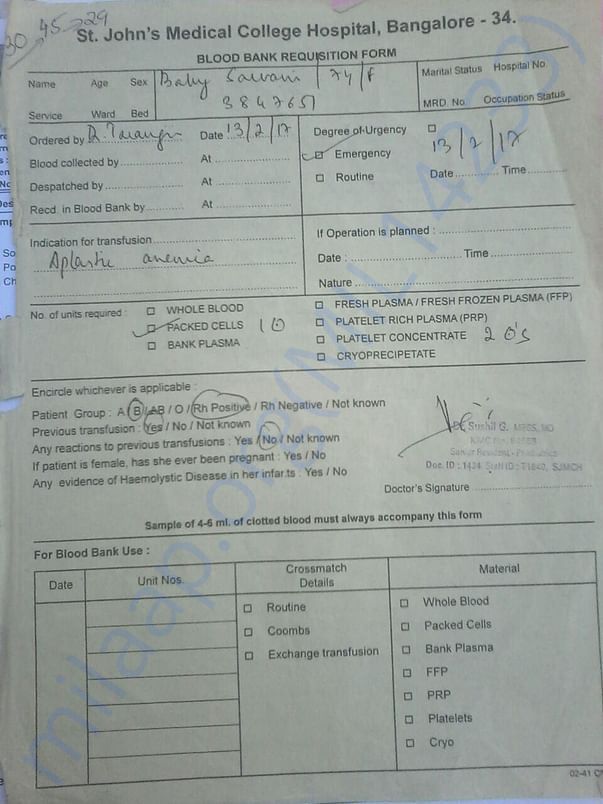 30, 45, 229
St. John's Medical College Hospital, Bangalore - 34.
BLOOD BANK REQUISITION FORM
Name Age Sex Baby 7y/F
Marital Status Hospital No.
3847651
Service Ward Bed
MRD. No. Occupation Status
Ordered by Dr. Date 13/2/17
Degree of Urgency
Blood collected by At
Emergency 13/2/17
Despatched by At
Routine Date Time
Recd. in Blood Bank by At
Indication for transfusion
Aplastic anemia
If Operation is planned :
Date : Time
Nature
No. of units required : WHOLE BLOOD
PACKED CELLS 10
BANK PLASMA
FRESH PLASMA / FRESH FROZEN PLASMA (FFP)
PLATELET RICH PLASMA (PRP)
PLATELET CONCENTRATE 20's
CRYOPRECIPETATE
Encircle whichever is applicable :
Patient Group : A / B / AB / O / Rh Positive / Rh Negative / Not known
Previous transfusion : Yes / No / Not known
Any reactions to previous transfusions : Yes / No / Not known
If patient is female, has she ever been pregnant : Yes / No
Any evidence of Haemolystic Disease in her infar.ts : Yes / No
Sushil G. MBBS, MD
Doc. ID : 1434 SJMCH
Doctor's Signature
Sample of 4-6 ml. of clotted blood must always accompany this form
For Blood Bank Use :
Date Unit Nos. Crossmatch Details Material
Routine
Coombs
Exchange transfusion
Whole Blood
Packed Cells
Bank Plasma
FFP
PRP
Platelets
Cryo
02-41